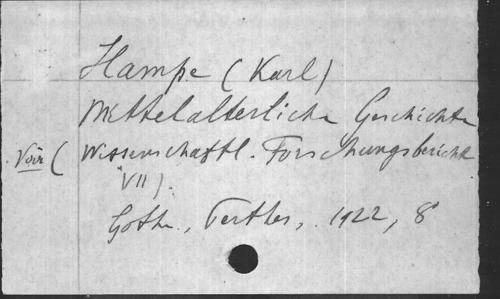 Hampe (Karl)
Mittelalterliche Geschichte
Voir (Wissenschaftl. Forschungsberichte
VII).
Gotha, Perthes, 1922, 8°